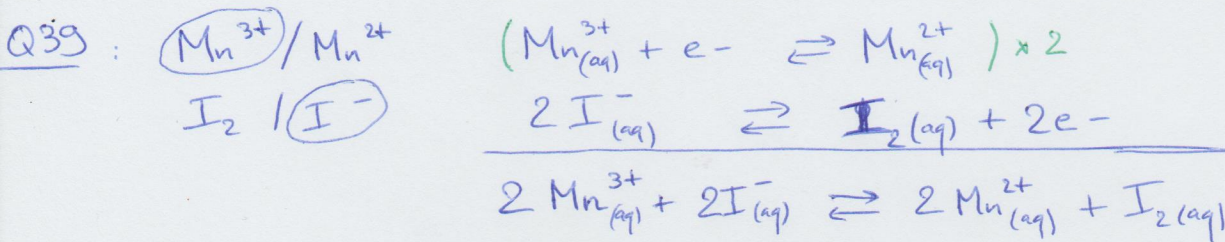 Q39 : Mn³⁺ / Mn²⁺ (Mn³⁺(aq) + e- ⇄ Mn²⁺(aq)) × 2
I₂ / I⁻ 2 I⁻(aq) ⇄ I₂(aq) + 2e-
2 Mn³⁺(aq) + 2I⁻(aq) ⇄ 2 Mn²⁺(aq) + I₂(aq)